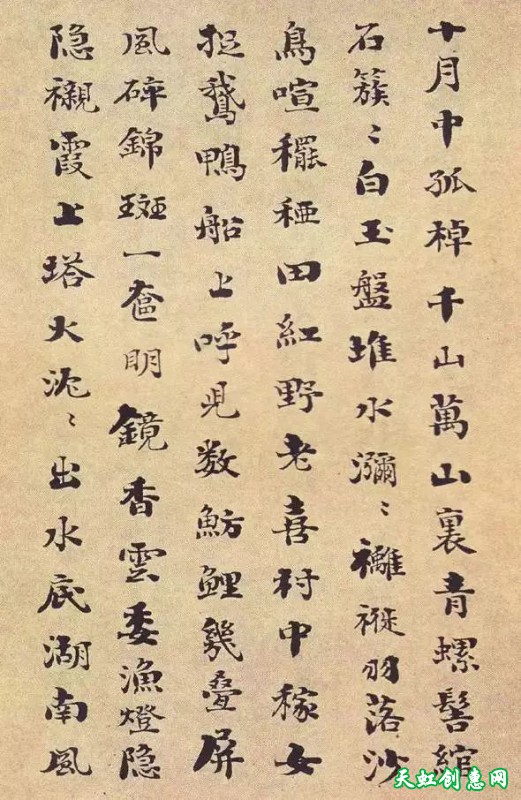 十月中孤棹千山萬山裏青螺髻綰
石簇〻白玉盤堆水瀰〻褷羽落沙
鳥喧穲稏田紅野老喜村中稼女
捉鵝鴨船上呼児数魴鯉幾叠屏
風碎錦斑一奩明鏡香雲委漁燈隐
隐襯霞上塔火沉〻出水底湖南風
天虹创惠网